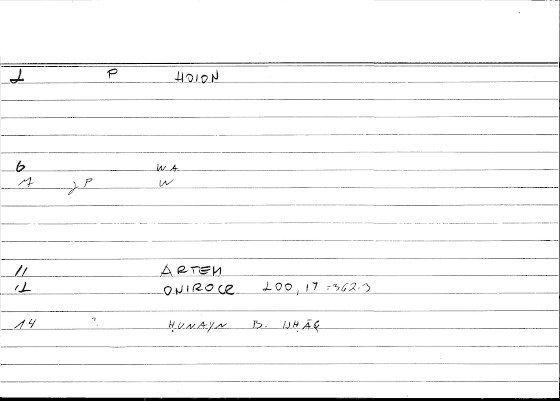 1 P HDION
6 WA
7 P W
11 ARTEM
12 ONIROCR 200, 17 = 362.3
14 ? ḤUNAYN B. ISḤĀQ